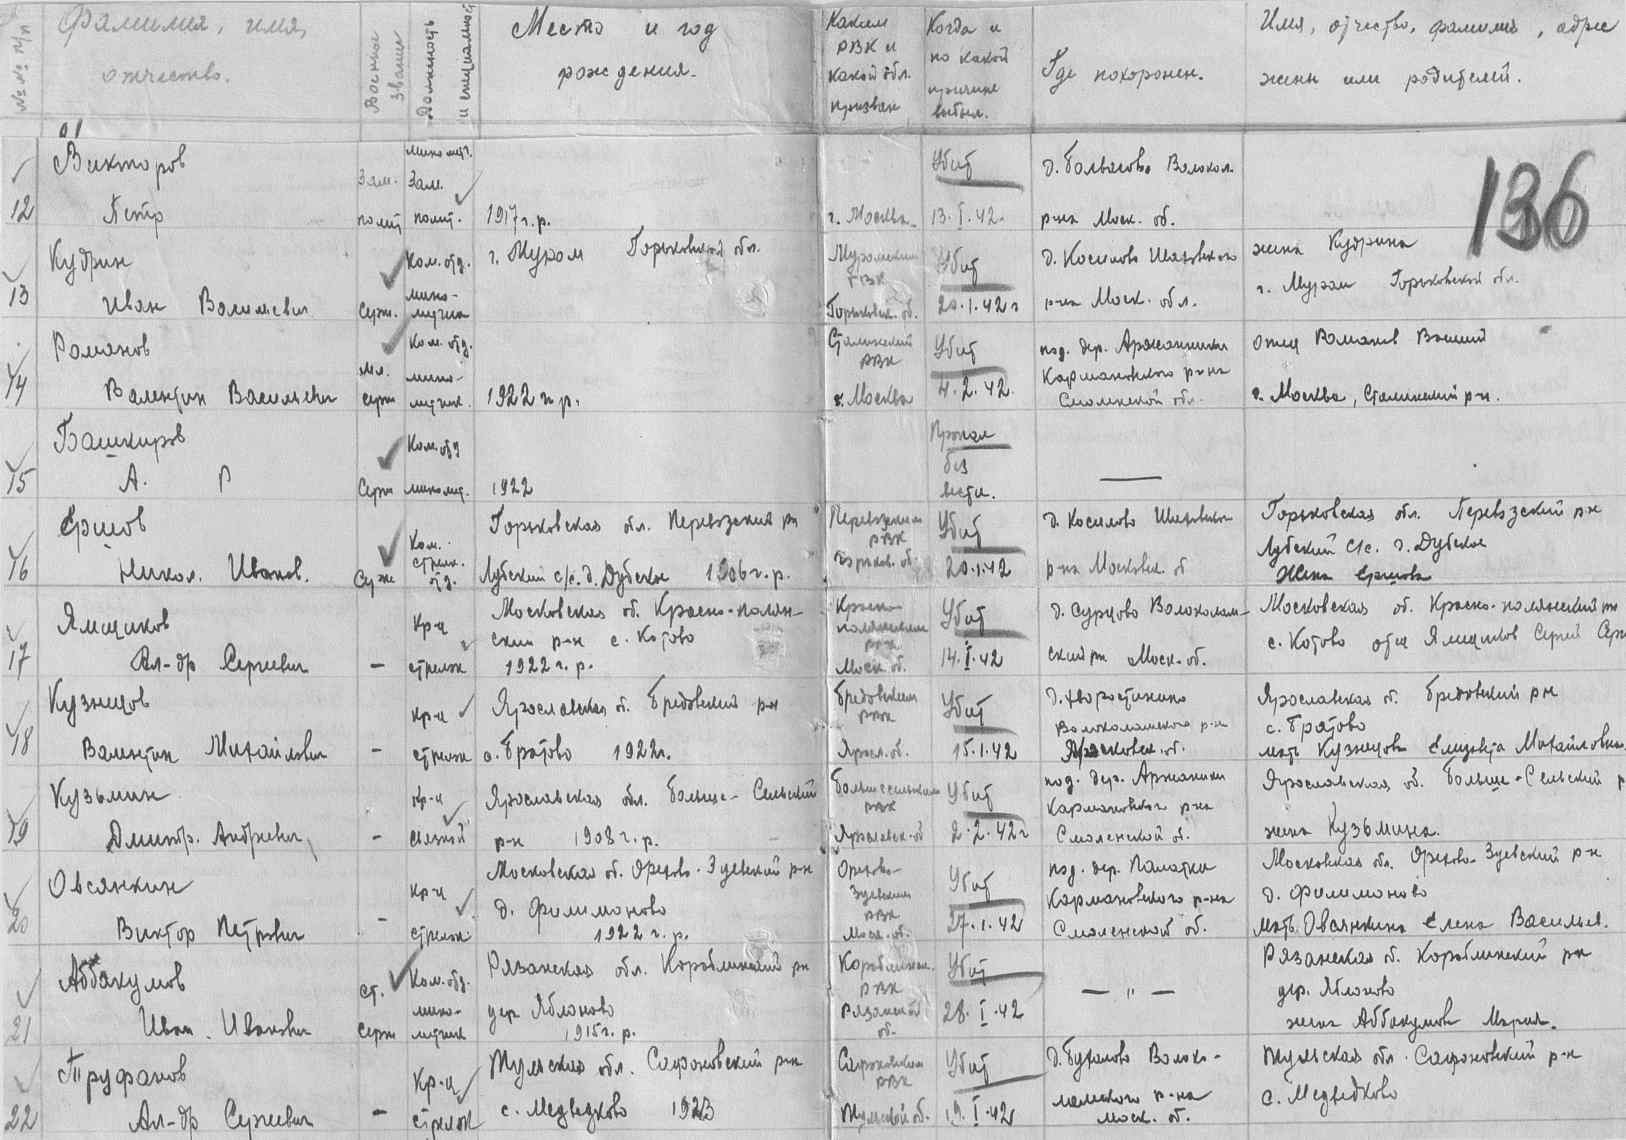 №№ п/п
Фамилия, имя,
отчество.
Военное
звание
Должность
и специальност
Место и год
рождения.
Каким
РВК и
какой обл.
призван
Когда и
по какой
причине
выбыл.
Где похоронен.
Имя, отчество, фамилия, адрес
жены или родителей.
136
12
Викторов
Петр
Зам.
полит
миномет.
Зам.
полит.
1917 г.р.
г. Москва
Убит
13.I.42.
р-на Моск. об.
13
Кудрин
Иван Васильевич
Серж.
Ком. отд.
мино-
метчик
г. Муром Горьковской обл.
Муромским
РВК
Горьковск. об.
Убит
20.1.42 г
д. Косилово Шаховского
р-на Моск. обл.
жена Кудрина
г. Муром Горьковской обл.
14
Романов
Валентин Васильевич
мл.
серж
Ком. отд.
мино-
метчик.
1922 г.р.
Сталинский
РВК
г. Москва
Убит
4.2.42.
под. дер. Аржаники
Кармановского р-на
Смоленской обл.
отец Романов Василий
г. Москва, Сталинский р-н.
15
Башкиров
А. Р
Серж
Ком. отд
миномет.
1922
Пропал
без
вести.
—
16
Ершов
Никол. Иванов.
Серж
Ком.
стрелк.
отд.
Горьковская обл. Перевозский рн
Дубский с/с. д. Дубское 1906 г.р.
Перевозским
РВК
Горьков. об.
Убит
20.1.42
д. Косилово Шаховского
р-на Московск. об
Горьковская обл. Перевозский р-н
Дубский с/с. д. Дубское
Жена Ершова
17
Ямщиков
Ал-др Сергеевич
—
Кр-ц
стрелок
Московская об. Красно-полян-
ский р-н с. Котово
1922 г.р.
Красно-
полянским
РВК
Моск. об.
Убит
14.I.42
д. Сурцово Волоколам-
ский рн Моск. об.
Московская об. Красно-полянский рн
с. Котово отец Ямщиков Сергей Серг
18
Кузнецов
Валентин Михайлович
—
Кр-ц
стрелок
Ярославская об. Бредовский р-н
с. Братово 1922 г.
Бредовским
РВК
Яросл. об.
Убит
15.1.42
д. Хворостинино
Волоколамского р-н
Московск. об.
Ярославская об. Бредовский р-н
с. Братово
мать Кузнецова Елизавета Михайловна
19
Кузьмин
Дмитр. Андреевич
—
Кр-ц
связной
Ярославская обл. Больше-Сельский
р-н 1908 г.р.
Большесельским
РВК
Ярославск. об
Убит
2.2.42 г
под. дер. Аржаники
Кармановского р-на
Смоленской об.
Ярославская об. Больше-Сельский р
жена Кузьмина.
20
Овсянкин
Виктор Петрович
-
Кр-ц
стрелок
Московская об. Орехово-Зуевский р-н
д. Филимоново
1922 г.р.
Орехово-
Зуевским
РВК
Моск. об.
Убит
27.1.42
под. дер. Палатки
Кармановского р-на
Смоленской об.
Московская обл. Орехово-Зуевский р-н
д. Филимоново
мать Овсянкина Елена Васильев.
21
Аббакумов
Иван. Иванович
ст.
серж
Ком. отд.
мино-
метчик
Рязанская обл. Кораблинский рн
дер Яблоново
1915 г.р.
Кораблинск.
РВК
Рязанской
об.
Убит
28.I.42
— " —
Рязанская об. Кораблинский рн
дер. Яблоново
жена Аббакумова Мария.
22
Труфанов
Ал-др Сергеевич
—
Кр-ц
стрелок
Тульская обл. Сафоновский р-н
с. Медведково 1923
Сафоновским
РВК
Тульской об.
Убит
19.I.42
д. Бутаково Волоко-
ламского р-на
Моск. об.
Тульская обл. Сафоновский р-н
с. Медведково